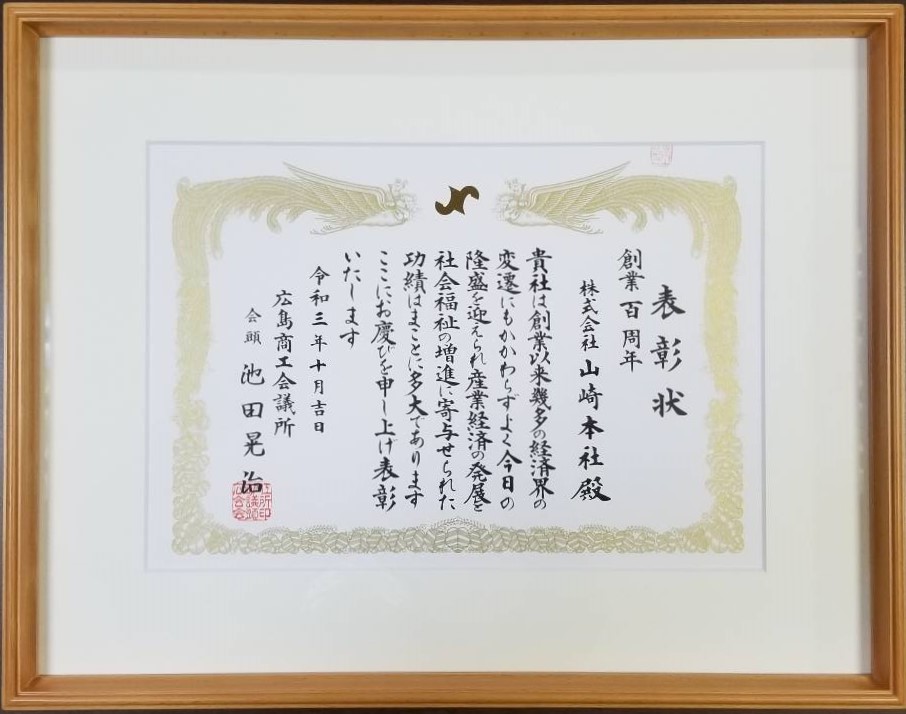 表彰状
創業百周年
株式会社山崎本社殿
貴社は創業以来幾多の経済界の
変遷にもかかわらずよく今日の
隆盛を迎えられ産業経済の発展と
社会福祉の増進に寄与せられた
功績はまことに多大であります
ここにお慶びを申し上げ表彰
いたします
令和三年十月吉日
広島商工会議所
会頭 池田晃治